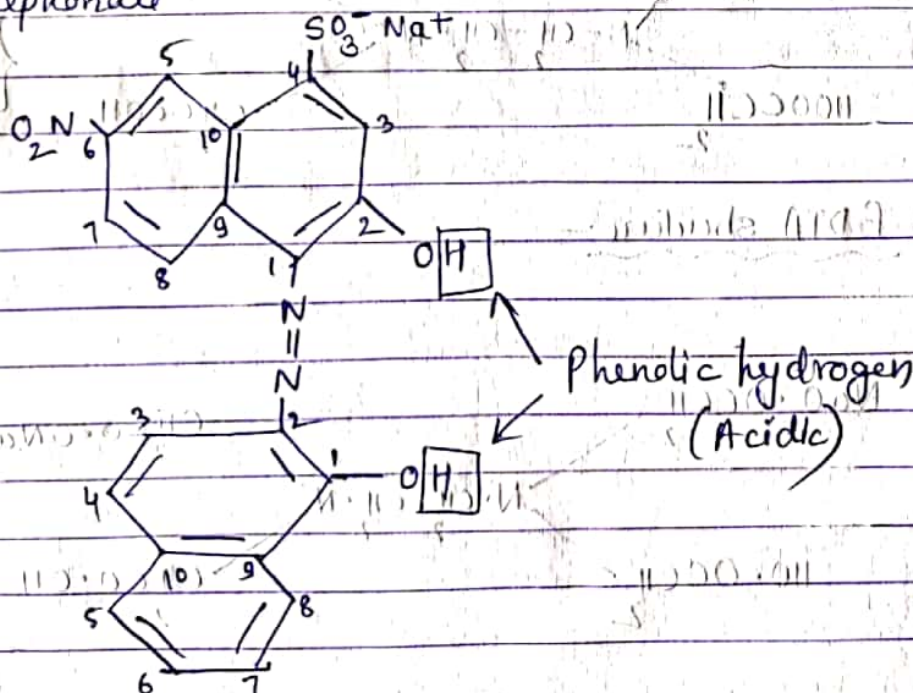 SO₃⁻ Na⁺
5
4
O₂N
6
10
3
7
9
2
8
1
OH
N
||
N
Phenolic hydrogen
(Acidic)
3
2
1
OH
4
10
9
5
8
6
7